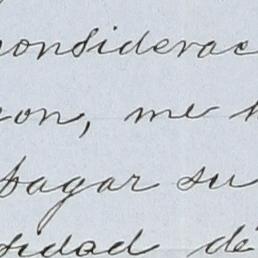 considerac
con, me h
pagar su
sidad de